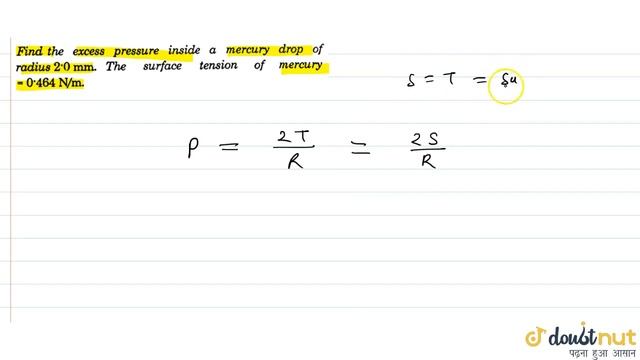 Find the excess pressure inside a mercury drop of
radius 2·0 mm. The surface tension of mercury
= 0·464 N/m.
S = T = Su
P = 2T/R = 2S/R
doubtnut
पढ़ना हुआ आसान